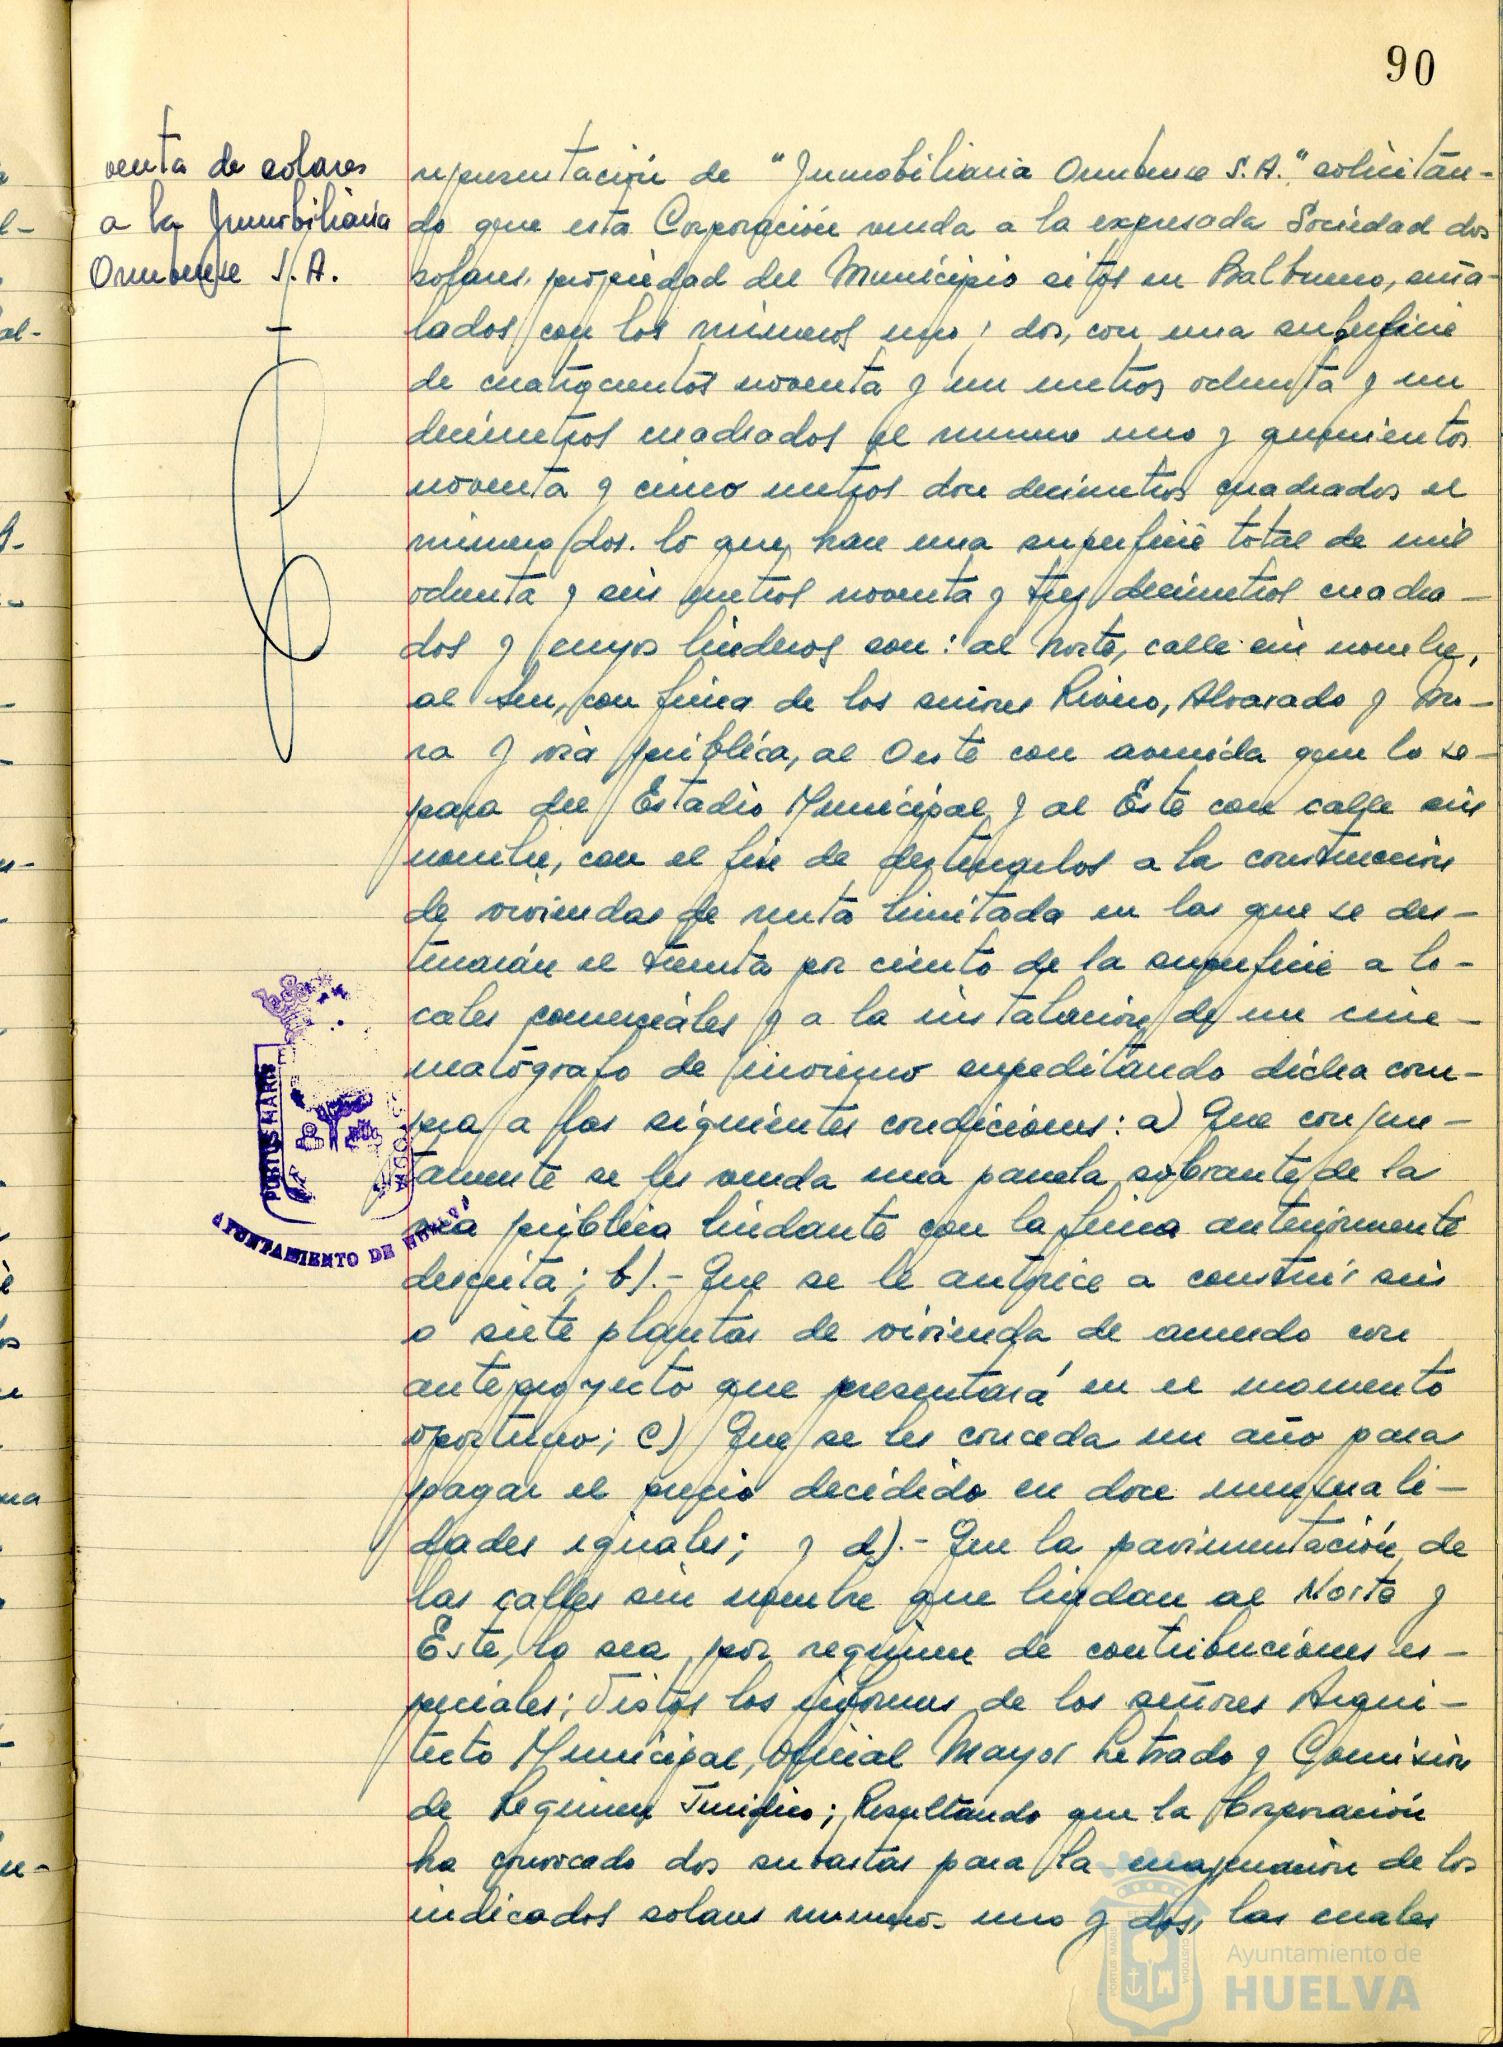 90
venta de solares
a la Inmobiliaria
Onubense S.A.
representación de "Inmobiliaria Onubense S.A." solicitan-
do que esta Corporación venda a la expresada Sociedad dos
solares, propiedad del Municipio sitos en Balbueno, seña-
lados con los números uno y dos, con una superficie
de cuatrocientos noventa y un metros ochenta y un
decímetros cuadrados el número uno y quinientos
noventa y cinco metros doce decímetros cuadrados el
número dos. lo que hace una superficie total de mil
ochenta y seis metros noventa y tres decímetros cuadra-
dos y cuyos linderos son: al Norte, calle sin nombre,
al Sur, con finca de los señores Rivero, Alvarado y Mo-
ra y vía pública, al Oeste con avenida que lo se-
para del Estadio Municipal y al Este con calle sin
nombre, con el fin de destinarlos a la construcción
de viviendas de renta limitada en las que se des-
tinarán el treinta por ciento de la superficie a lo-
cales comerciales y a la instalación de un cine-
matógrafo de invierno supeditando dicha com-
pra a las siguientes condiciones: a) Que conjun-
tamente se les venda una parcela sobrante de la
vía pública lindante con la finca anteriormente
descrita; b).- Que se le autorice a construir seis
o siete plantas de vivienda de acuerdo con
anteproyecto que presentará en el momento
oportuno; c) Que se les conceda un año para
pagar el precio decidido en doce mensuali-
dades iguales; y d).- Que la pavimentación de
las calles sin nombre que lindan al Norte y
Este, lo sea por regimen de contribuciones es-
peciales; Vistos los informes de los señores Arqui-
tecto Municipal, Oficial Mayor Letrado y Comisión
de Regimen Jurídico; Resultando que la Corporación
ha convocado dos subastas para la enajenación de los
indicados solares números uno y dos, las cuales
PORTUS MARIS
CUSTODIA
AYUNTAMIENTO DE HUELVA
PORTUS MARIS
CUSTODIA
Ayuntamiento de
HUELVA